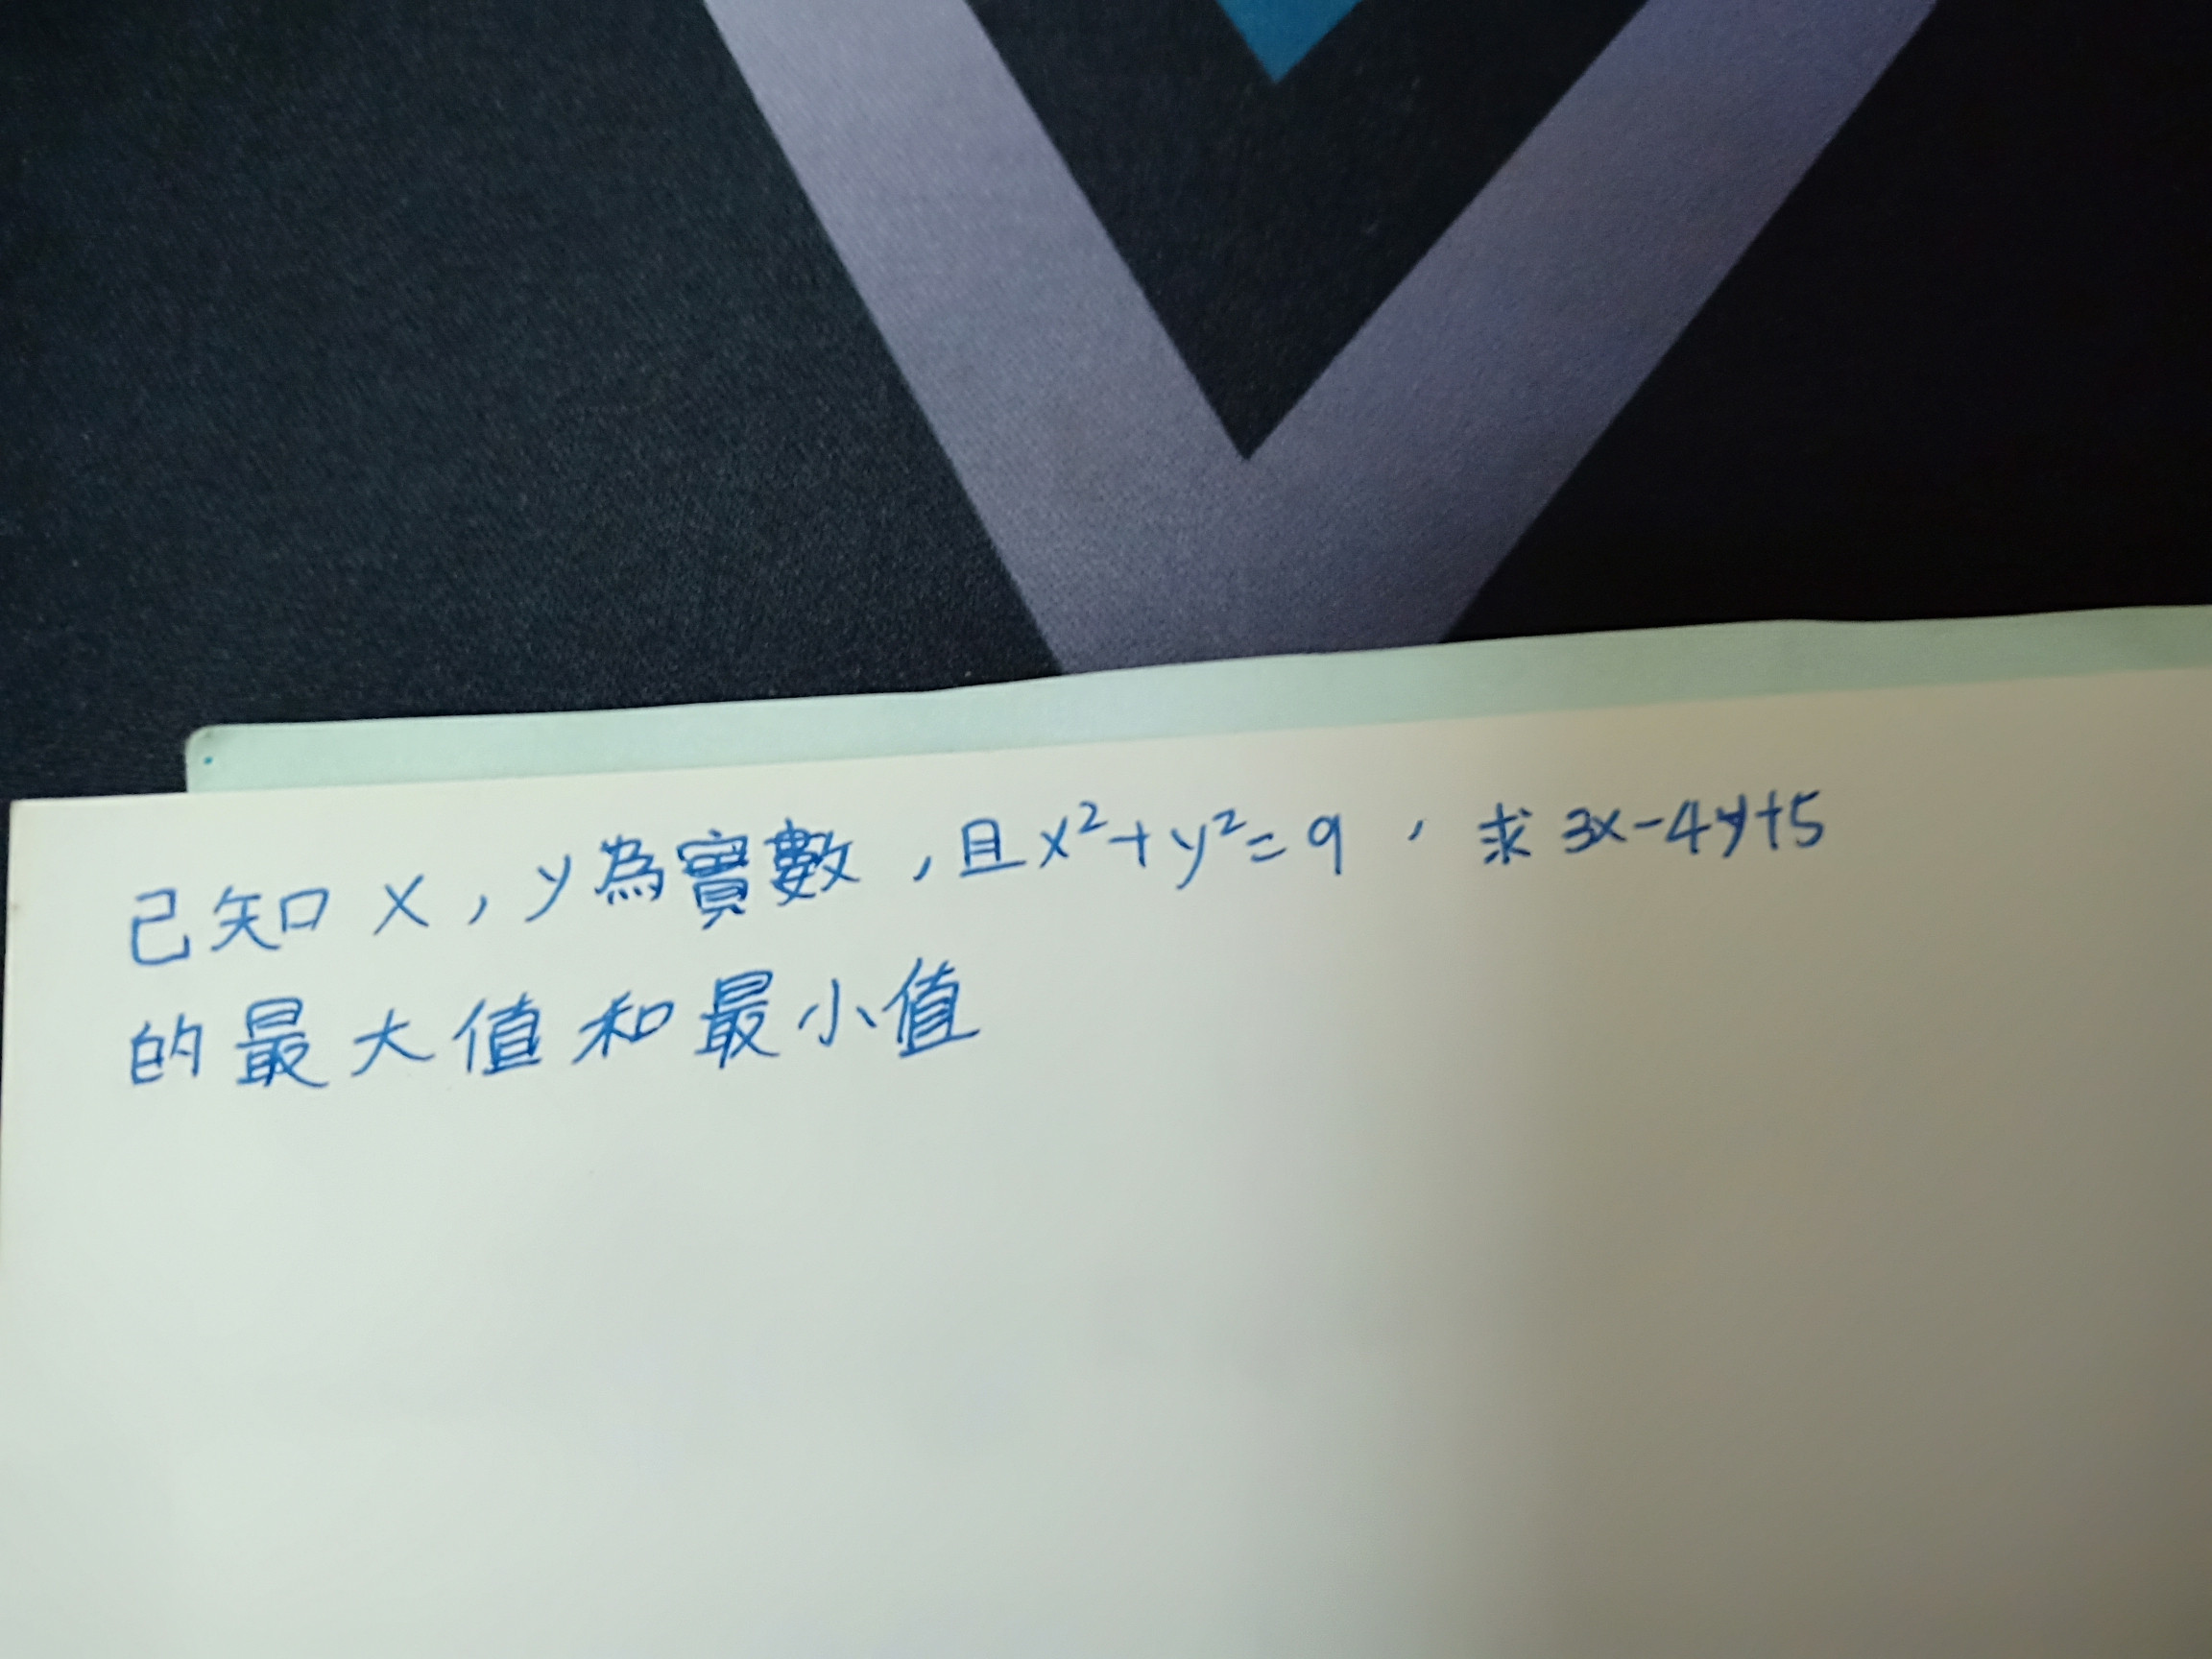 已知 x , y 為實數 , 且 x²+y²=9 , 求 3x-4y+5
的最大值和最小值